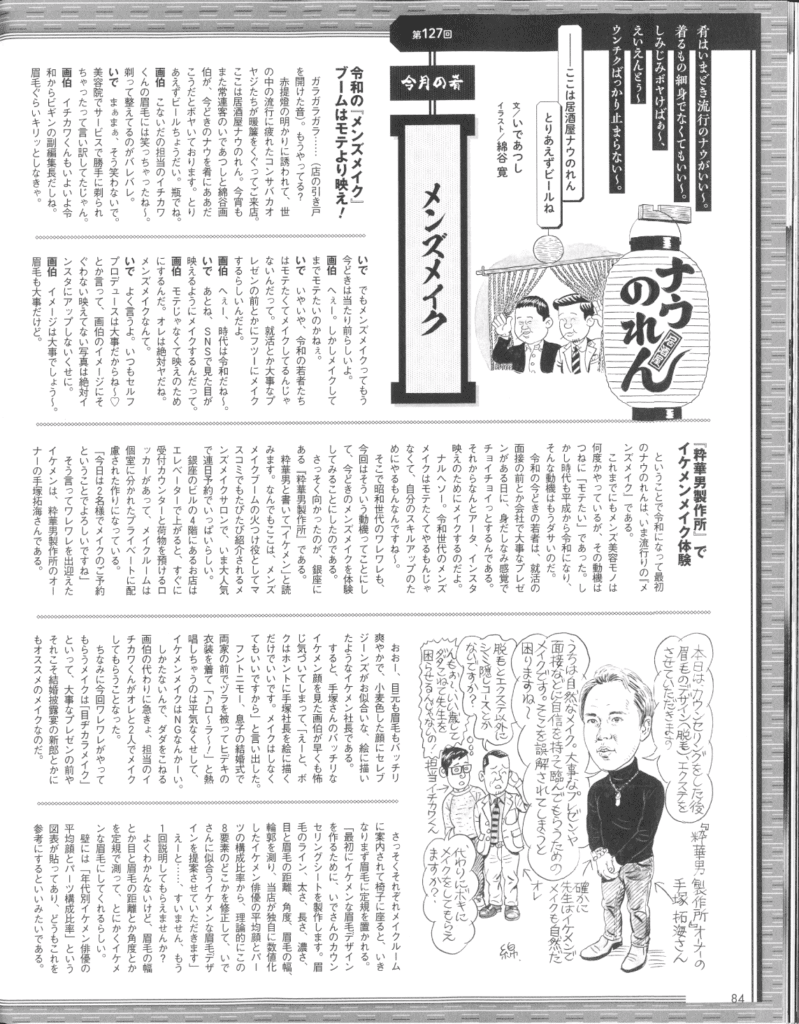 肴はいまどき流行のナウがいい〜。
着るもの細身でなくてもいい〜。
しみじみボヤけばぁ〜、
えいえんとぅ〜
ウンチクばっかり止まらない〜。
第127回
今月の肴
メンズメイク
──ここは居酒屋ナウのれん
とりあえずビールね
文／いであつし
イラスト／綿谷 寛
ナウのれん
居酒屋
令和の『メンズメイク』
ブームはモテより映え！
ガラガラガラ……（店の引き戸
を開けた音）。もうやってる？
赤提燈の明かりに誘われて、世
の中の流行に疲れたコンサバカオ
ヤジたちが暖簾をくぐってご来店。
ここは居酒屋ナウのれん。今宵も
また常連客のいであつしと綿谷画
伯が、今どきのナウを肴にああだ
こうだとボヤいております。とり
あえずビールちょうだい。瓶でね。
画伯　こないだの担当のイチカワ
くんの眉毛には笑っちゃったね〜。
剃って整えてるのがバレバレ。
いで　まぁまぁ、そう笑わないで。
美容院でサービスで勝手に剃られ
ちゃったって言い訳してたじゃん。
画伯　イチカワくんもいよいよ令
和からビギンの副編集長だしね。
眉毛ぐらいキリッとしなきゃ。
いで　でもメンズメイクってもう
今どきは当たり前らしいよ。
画伯　へぇー。しかしメイクして
までモテたいのかねぇ。
いで　いやいや、令和の若者たち
はモテたくてメイクしてるんじゃ
ないんだって。就活とか大事なプ
レゼンの前とかにフツーにメイク
するらしいんだよ。
画伯　へぇー、時代は令和だね〜。
いで　あとね、SNSで見た目が
映えるようにメイクするんだって。
画伯　モテじゃなくて映えのため
にするんだ。オレは絶対ヤだね。
メンズメイクなんて。
いで　よく言うよ。いつもセルフ
プロデュースは大事だからね〜♡
とか言って、画伯のイメージにそ
ぐわない映えてない写真は絶対イ
ンスタにアップしないくせに。
画伯　イメージは大事でしょう〜。
眉毛も大事だけど。
『粋華男製作所』で
イケメンメイク体験
ということで令和になって最初
のナウのれんは、いま流行りの『メ
ンズメイク』である。
これまでにもメンズ美容モノは
何度かやっているが、その動機は
つねに「モテたい」であった。し
かし時代も平成から令和になり、
そんな動機はもうダサいのだ。
令和の今どきの若者は、就活の
面接の前とか会社で大事なプレゼ
ンがある日に、身だしなみ感覚で
チョイチョイっとするんである。
それからなんとアータ、インスタ
映えのためにメイクするのだよ。
ナルヘソー。令和世代のメンズ
メイクはモテたくてやるもんじゃ
なくて、自分のスキルアップのた
めにやるもんなんですね〜。
そこで昭和世代のワレワレも、
今回はそういう動機ってことにし
て、今どきのメンズメイクを体験
してみることにしたのである。
さっそく向かったのが、銀座に
ある『粋華男製作所』である。
粋華男と書いて「イケメン」と読
みます。なんでもここは、メンズ
メイクブームの火つけ役としてマ
スコミでもたびたび紹介されるメ
ンズメイクサロンで、いま大人気
で連日予約でいっぱいらしい。
銀座のビルの4階にあるお店は
エレベーターで上がると、すぐに
受付カウンターと荷物を預けるロ
ッカーがあって、メイクルームは
個室に分かれたプライベートに配
慮された作りになっている。
「今日は2名様でメイクのご予約
ということでよろしいですね」
そう言ってワレワレを出迎えた
イケメンは、粋華男製作所のオー
ナーの手塚拓海さんである。
おおー、目元も眉毛もバッチリ
爽やかで、小麦色した顔にセレブ
ジーンズがお似合いな、絵に描い
たようなイケメン社長である。
すると、手塚さんのバッチリな
イケメン顔を見た画伯が早くも怖
じ気づいてしまって「えーと、ボ
クはホントに手塚社長を絵に描く
だけでいいです。メイクはしなく
てもいいですから」と言い出した。
フントニモー、息子の結婚式で
両家の前でヅラを被ってヒデキの
衣装を着て「ＹＯＬ〜ラ〜！」と熱
唱しちゃうのは平気なくせして、
イケメンメイクはNGなんかーい。
しかたないんで、ダダをこねる
画伯の代わりに急きょ、担当のイ
チカワくんがオレと2人でメイク
してもらうことなった。
ちなみに今回ワレワレがやって
もらうメイクは「目ヂカラメイク」
といって、大事なプレゼンの前や
それこそ結婚披露宴の新郎とかに
もオススメのメイクなのだ。
さっそくそれぞれメイクルーム
に案内されて椅子に座ると、いき
なりまず眉毛に定規を置かれる。
「最初にイケメンな眉毛デザイン
を作るために、いでさんのカウン
セリングシートを製作します。眉
毛のライン、太さ、長さ、濃さ、
目と眉毛の距離、角度、眉毛の幅、
輪郭を測り、当店が独自に数値化
したイケメン俳優の平均顔とパー
ツの構成比率から、理論的にこの
8要素のどこかを修正して、いで
さんに似合うイケメンな眉毛デザ
インを提案させていただきます」
えーと……、すいません、もう
1回説明してもらえませんか？
よくわかんないけど、眉毛の幅
とか目と眉毛の距離とか角度とか
を定規で測って、とにかくイケメ
ンな眉毛にしてくれるらしい。
壁には「年代別イケメン俳優の
平均顔とパーツ構成比率」という
図表が貼ってあり、どうもこれを
参考にするといいみたいである。
本日はカウンセリングをした後
眉毛のデザイン脱毛、エクステを
させていただきます
『粋華男製作所』オーナーの
手塚 拓海さん
うちは自然なメイク。大事なプレゼンや
面接などを自信を持って臨んでもらうための
メイクです。そこを誤解されてしまうと
困りますね〜
脱毛とエクステ以外に
シミ隠しコースとか
ないですか？
んもぉ〜いい歳して
ダダこねて先生を
困らせるんじゃないの
担当イチカワくん
オレ
確かに
先生はイケメンで
メイクも自然だ
代わりに小キに
メイクをしてもらえ
ますか？
綿
84